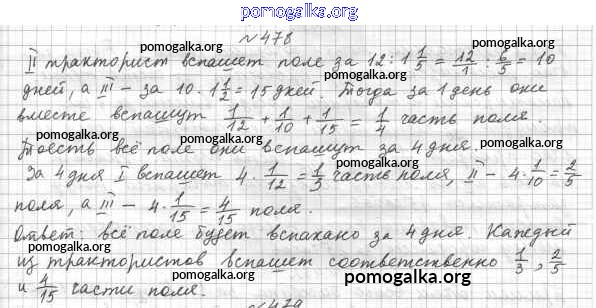 pomogalka.org
№478
II тракторист вспашет поле за 12 : 1 1/5 = 12/1 : 6/5 = 10
pomogalka.org pomogalka.org
дней, а III – за 10 · 1 1/2 = 15 дней. Тогда за 1 день они
pomogalka.org
вместе вспашут 1/12 + 1/10 + 1/15 = 1/4 часть поля.
pomogalka.org pomogalka.org
Тоесть всё поле они вспашут за 4 дня.
pomogalka.org
За 4 дня I вспашет 4 · 1/12 = 1/3 часть поля, II – 4 · 1/10 = 2/5
pomogalka.org
поля, а III – 4 · 1/15 = 4/15 поля.
pomogalka.org
Ответ: всё поле будет вспахано за 4 дня. Каждый
pomogalka.org
из трактористов вспашет соответственно 1/3, 2/5
pomogalka.org
и 4/15 части поля.
pomogalka.org
№479